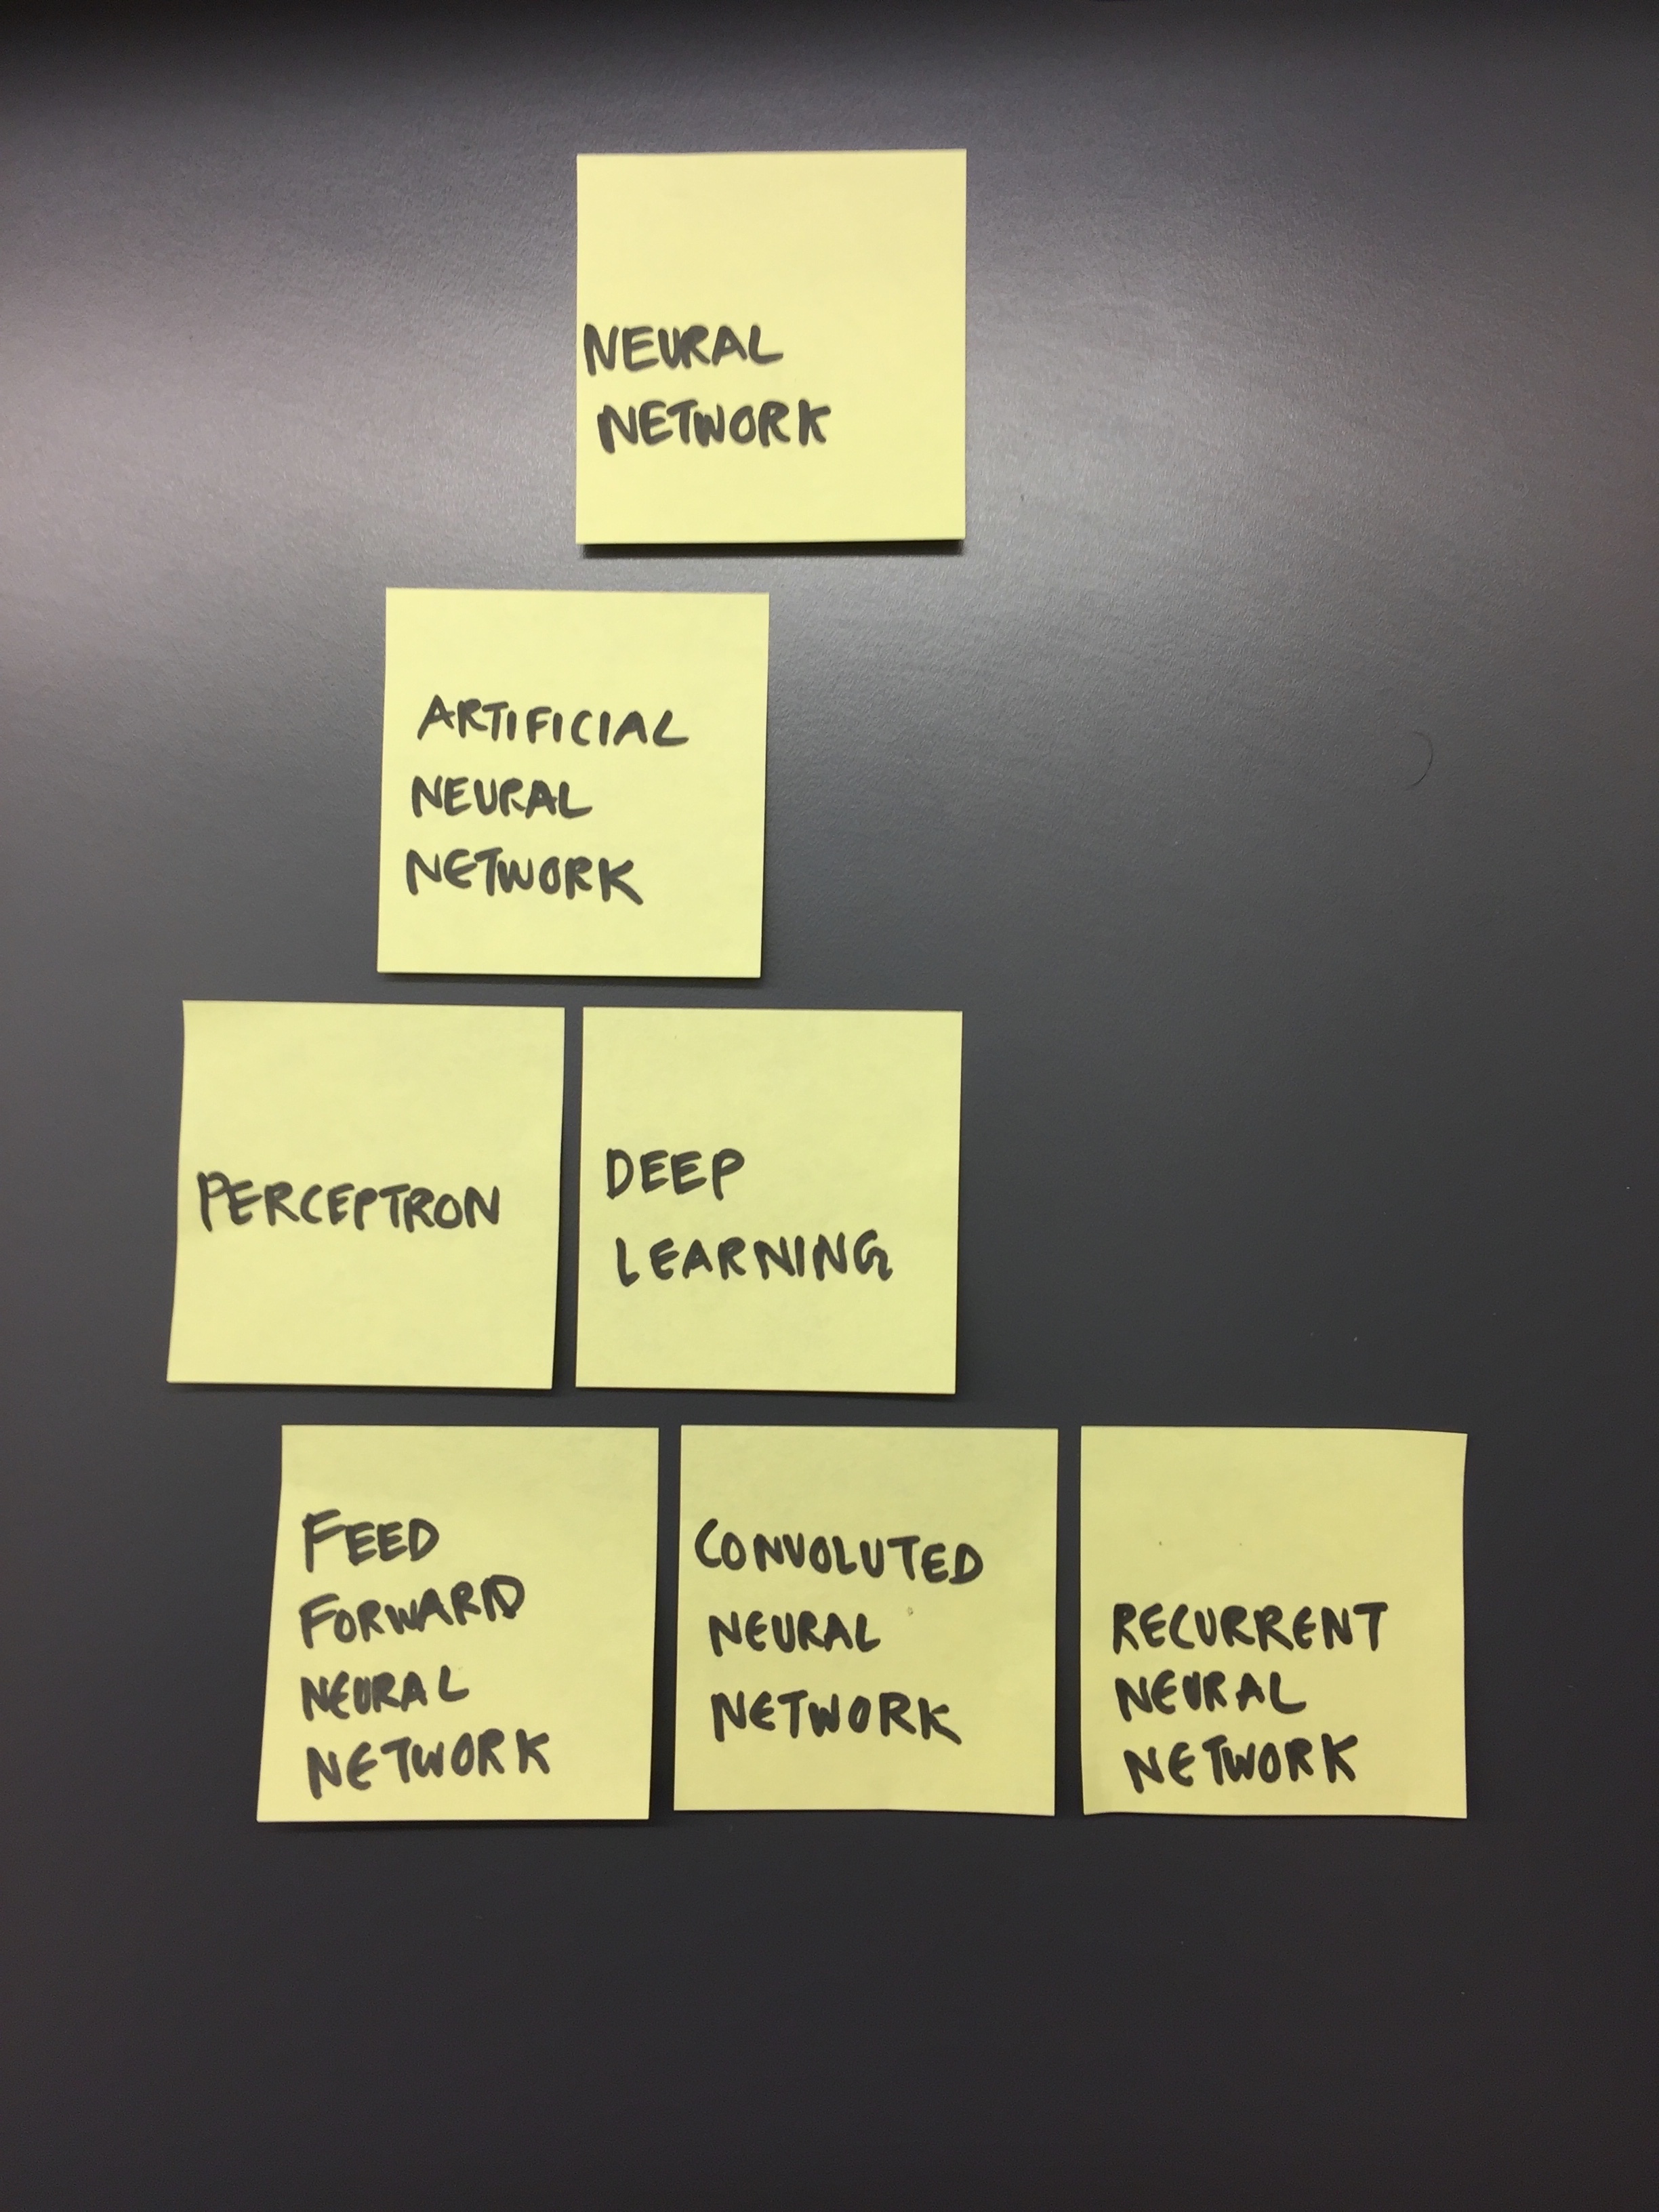 NEURAL
NETWORK
ARTIFICIAL
NEURAL
NETWORK
PERCEPTRON
DEEP
LEARNING
FEED
FORWARD
NEURAL
NETWORK
CONVOLUTED
NEURAL
NETWORK
RECURRENT
NEURAL
NETWORK